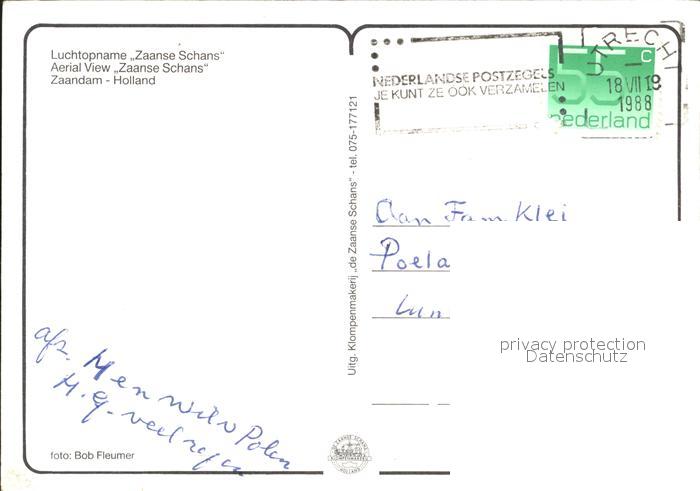 Luchtopname „Zaanse Schans“
Aerial View „Zaanse Schans“
Zaandam - Holland
NEDERLANDSE POSTZEGELS
JE KUNT ZE OOK VERZAMELEN
UTRECHT
18 VII 18
1988
55 c
nederland
Uitg. Klompenmakerij „de Zaanse Schans“ - tel. 075-177121
Aan Fam. Klei
Poela
Lun
privacy protection
Datenschutz
afz.
H.G.
foto: Bob Fleumer
DE ZAANSE SCHANS
KLOMPENMAKERIJ
HOLLAND